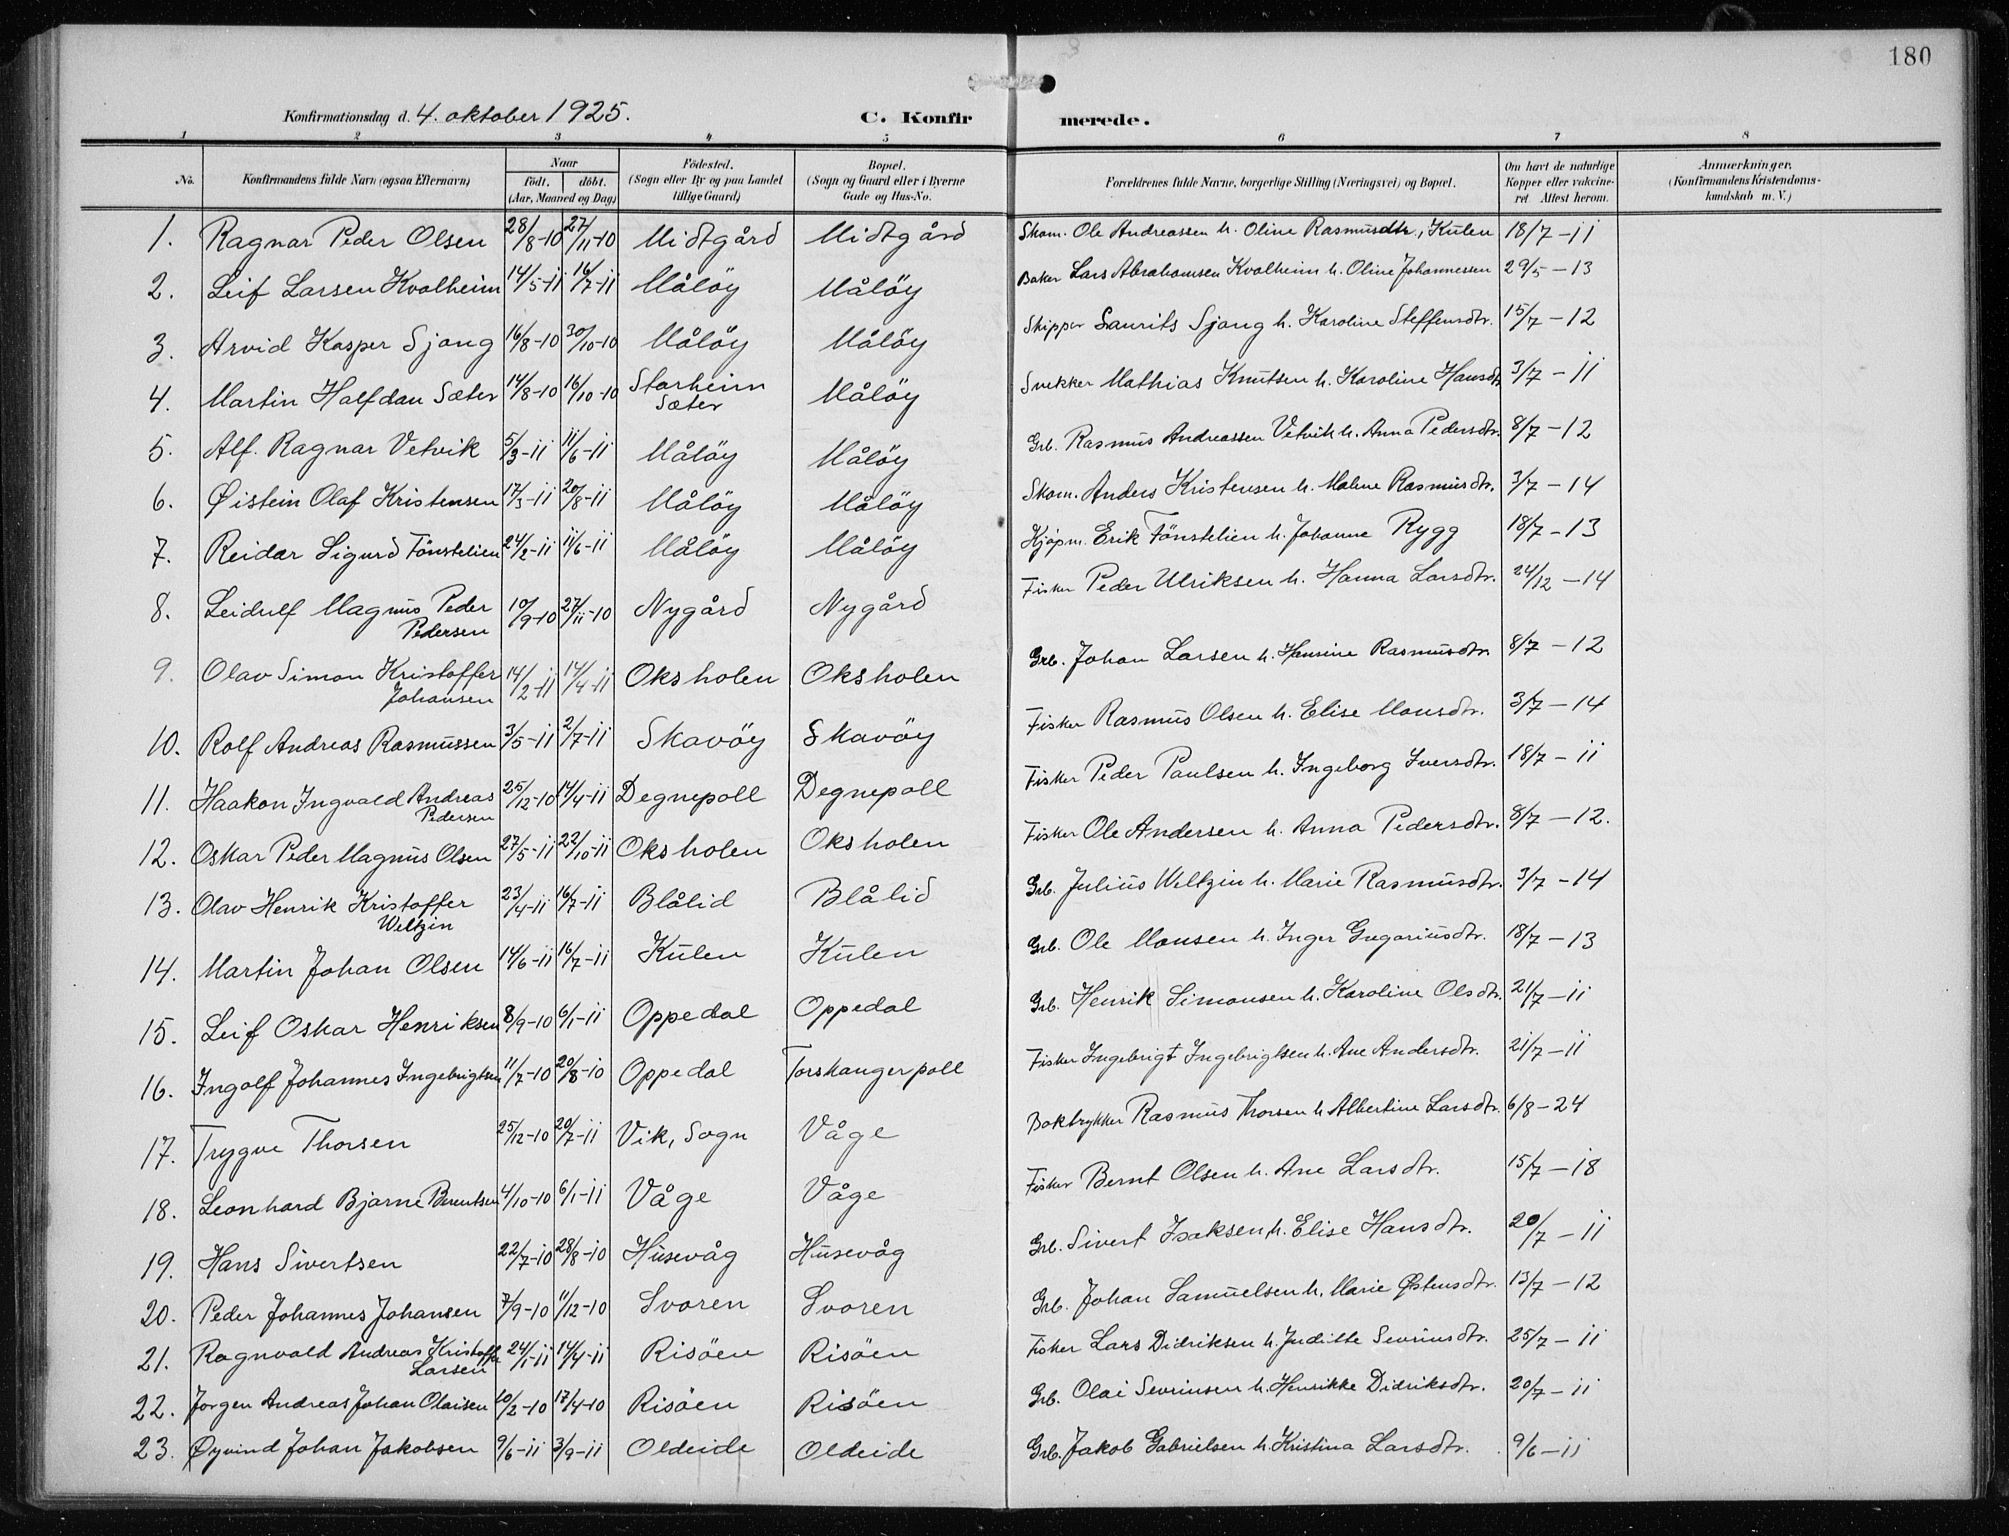 180
Konfirmationsdag d. 4. oktober 1925.
C. Konfirmerede.
1 2 3 4 5 6 7 8
No. Konfirmandens fulde Navn (ogsaa Efternavn) Naar födt. döbt. (Aar, Maaned og Dag) Födested. (Sogn eller By og paa Landet tillige Gaard) Bopæl. (Sogn og Gaard eller i Byerne Gade og Hus-No. Forældrenes fulde Navne, borgerlige Stilling (Næringsvei) og Bopæl. Om havt de naturlige Kopper eller vakcineret Attest herom. Anmærkninger. (Konfirmandens Kristendomskundskab m. V.)
1. Ragnar Peder Olsen 28/8-10 27/11-10 Midtgård Midtgård Skom. Ole Andreassen h. Oline Rasmusdtr., Kulen 18/7-11
2. Leif Larsen Kvalheim 14/5-11 16/7-11 Målöy Målöy Baker Lars Abrahamsen Kvalheim h. Oline Johannessen 29/5-13
3. Arvid Kasper Sjong 16/8-10 30/10-10 Målöy Målöy Skipper Laurits Sjong h. Karoline Steffensdtr. 15/7-12
4. Martin Halfdan Sæter 14/8-10 16/10-10 Starheim Sæter Målöy Snekker Mathias Knutsen h. Karoline Hansdtr 3/7-11
5. Alf. Ragnar Vetvik 5/3-11 11/6-11 Målöy Målöy Grb. Rasmus Andreassen Vetvik h. Anna Pedersdtr. 8/7-12
6. Øistein Olaf Kristensen 17/3-11 20/8-11 Målöy Målöy Skom. Anders Kristensen h. Malene Rasmusdtr. 3/7-14
7. Reidar Sigurd Tönstelien 24/2-11 11/6-11 Målöy Målöy Kjøpm. Erik Tönstelien h. Johanne Rygg 18/7-13
8. Leidulf Magnus Peder Pedersen 10/9-10 27/11-10 Nygård Nygård Fisker Peder Ulriksen h. Hanna Larsdtr. 24/12-14
9. Olav Simon Kristoffer Johansen 14/2-11 17/4-11 Oksholen Oksholen Grb. Johan Larsen h. Hansine Rasmusdtr. 8/7-12
10. Rolf Andreas Rasmussen 3/5-11 2/7-11 Skavöy Skavöy Fisker Rasmus Olsen h. Elise Monsdtr. 3/7-14
11. Haakon Ingvald Andreas Pedersen 25/12-10 14/4-11 Degnepoll Degnepoll Fisker Peder Paulsen h. Ingeborg Iversdtr. 18/7-11
12. Oskar Peder Magnus Olsen 27/5-11 22/10-11 Oksholen Oksholen Fisker Ole Andersen h. Anna Pedersdtr. 8/7-12.
13. Olav Henrik Kristoffer Weltzin 23/4-11 16/7-11 Blålid Blålid Grb. Julius Weltzin h. Marie Rasmusdtr. 3/7-14
14. Martin Johan Olsen 14/6-11 16/7-11 Kulen Kulen Grb. Ole Monsen h. Inger Gregoriusdtr. 18/7-13
15. Leif Oskar Henriksen 8/9-10 6/1-11 Oppedal Oppedal Grb. Henrik Simonsen h. Karoline Olsdtr. 21/7-11
16. Ingolf Johannes Ingebrigtsen 11/7-10 20/8-10 Oppedal Torskangerpoll Fisker Ingebrigt Ingebrigtsen h. Ane Andersdtr. 21/7-11
17. Trygve Thorsen 25/12-10 20/7-11 Vik, Sogn Våge Boktrykker Rasmus Thorsen h Albertine Larsdtr. 6/8-24
18. Leonhard Bjarne Berentsen 4/10-10 6/1-11 Våge Våge Fisker Bernt Olsen h. Ane Larsdtr. 15/7-18
19. Hans Sivertsen 22/7-10 28/8-10 Husevåg Husevåg Grb. Sivert Isaksen, h. Elise Hansdtr. 20/7-11
20. Peder Johannes Johansen 7/9-10 11/12-10 Svoren Svoren Grb. Johan Samuelsen h. Marie Østensdtr. 13/7-12
21. Ragnvald Andreas Kristoffer Larsen 24/1-11 14/4-11 Risöen Risöen Fisker Lars Didriksen h. Juditte Sevrinsdtr. 25/7-11
22. Jörgen Andreas Johan Olaisen 10/2-10 17/4-10 Risöen Risöen Grb. Olai Sevrinsen h. Henrikke Didriksdtr. 20/7-11
23. Øyvind Johan Jakobsen 9/6-11 3/9-11 Oldeide Oldeide Grb. Jakob Gabrielsen h. Kristina Larsdtr. 9/6-11